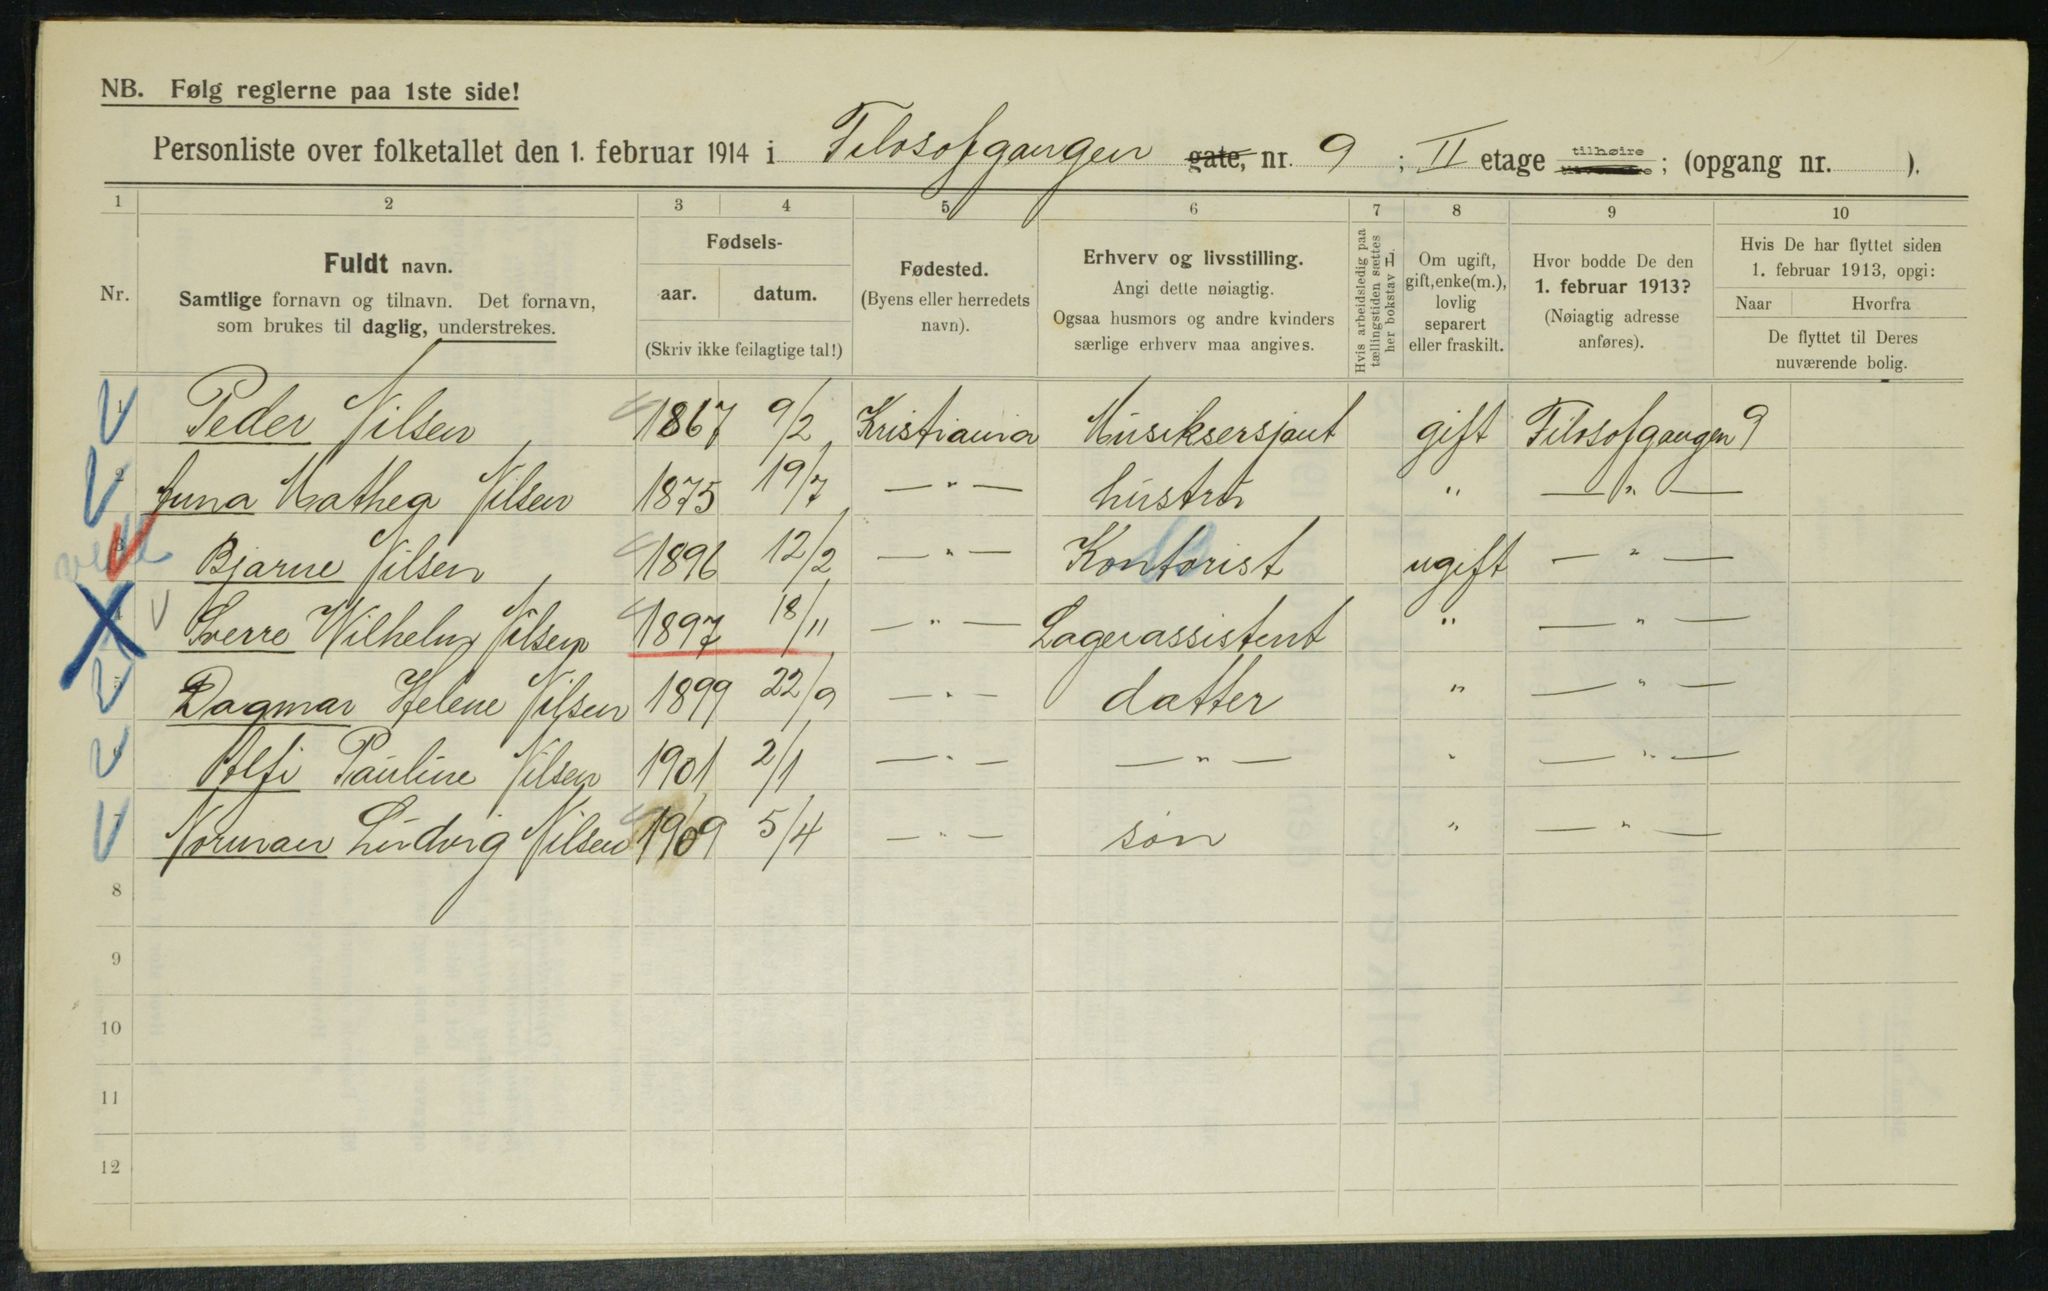 NB. Følg reglerne paa 1ste side!
Personliste over folketallet den 1. februar 1914 i Filosofgangen gate, nr. 9 ; II etage tilhøire ; (opgang nr. ).
1 2 3 4 5 6 7 8 9 10
Nr.
Fuldt navn.
Samtlige fornavn og tilnavn. Det fornavn,
som brukes til daglig, understrekes.
Fødsels-
aar. datum.
(Skriv ikke feilagtige tal!)
Fødested.
(Byens eller herredets
navn).
Erhverv og livsstilling.
Angi dette nøiagtig.
Ogsaa husmors og andre kvinders
særlige erhverv maa angives.
Hvis arbeidsledig paa
tællingstiden sættes
her bokstav L.
Om ugift,
gift, enke(m.),
lovlig
separert
eller fraskilt.
Hvor bodde De den
1. februar 1913?
(Nøiagtig adresse
anføres).
Hvis De har flyttet siden
1. februar 1913, opgi:
Naar Hvorfra
De flyttet til Deres
nuværende bolig.
1 Peder Nilsen 1867 9/2 Kristiania Musiksersjant gift Filosofgangen 9
2 Anna Mathea Nilsen 1875 19/7 — " — hustru " — " —
3 Bjarne Nilsen 1896 12/2 — " — Kontorist ugift — " —
4 Sverre Wilhelm Nilsen 1897 18/11 — " — Lagerassistent " — " —
5 Dagmar Helene Nilsen 1899 22/9 — " — datter " — " —
6 Alfi Pauline Nilsen 1901 2/1 — " — — " — " — " —
7 Norman Ludvig Nilsen 1909 5/4 — " — søn " — " —
8
9
10
11
12